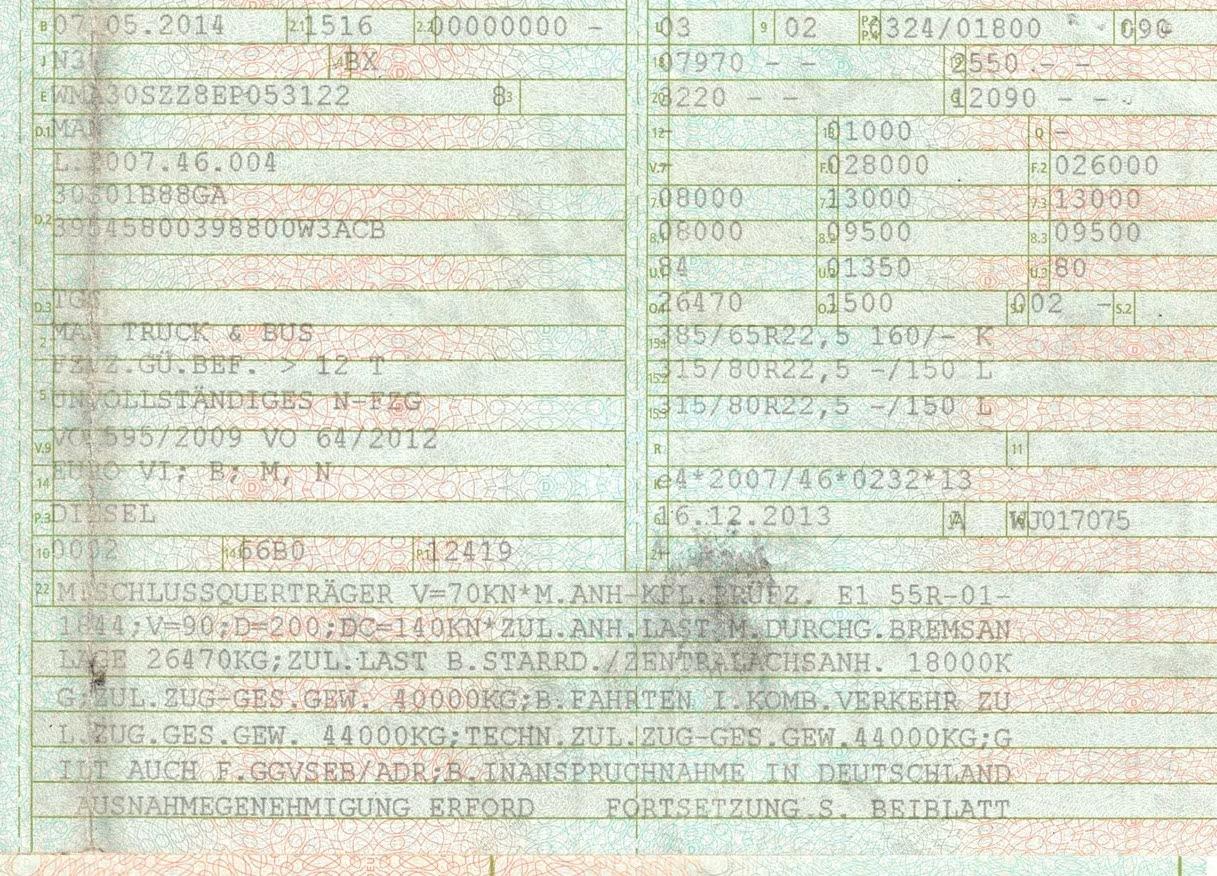 B 07.05.2014 2.1 1516 2.2 00000000 -
J N3 4 BX
E WMA30SZZ8EP053122 3 8
D.1 MAN
L.2007.46.004
D.2 30S01B88GA
39S45800398800W3ACB
D.3 TGS
2 MAN TRUCK & BUS
FZ.Z.GÜ.BEF. > 12 T
5 UNVOLLSTÄNDIGES N-FZG
V.9 VO 595/2009 VO 64/2012
14 EURO VI; B; M, N
P.3 DIESEL
10 0002 14.1 66B0 P.1 12419
L 03 9 02 P.2 P.4 324/01800 090
18 07970 - - 19 2550 - -
20 3220 - - G 12090 - -
12 - 13 01000 Q -
V.7 F.1 028000 F.2 026000
7.1 08000 7.2 13000 7.3 13000
8.1 08000 8.2 09500 8.3 09500
U.1 84 U.2 01350 U.3 80
O.1 26470 O.2 1500 S.1 002 - S.2
15.1 385/65R22,5 160/- K
15.2 315/80R22,5 -/150 L
15.3 315/80R22,5 -/150 L
R 11
K e4*2007/46*0232*13
6 16.12.2013 17 A 16 WJ017075
21
22 M.SCHLUSSQUERTRÄGER V=70KN*M.ANH-KPL.PRÜFZ. E1 55R-01-
1844;V=90;D=200;DC=140KN*ZUL.ANH.LAST M.DURCHG.BREMSAN
LAGE 26470KG;ZUL.LAST B.STARRD./ZENTRALACHSANH. 18000K
G;ZUL.ZUG-GES.GEW. 40000KG;B.FAHRTEN I.KOMB.VERKEHR ZU
L.ZUG.GES.GEW. 44000KG;TECHN.ZUL.ZUG-GES.GEW.44000KG;G
ILT AUCH F.GGVSEB/ADR;B.INANSPRUCHNAHME IN DEUTSCHLAND
AUSNAHMEGENEHMIGUNG ERFORD FORTSETZUNG S. BEIBLATT